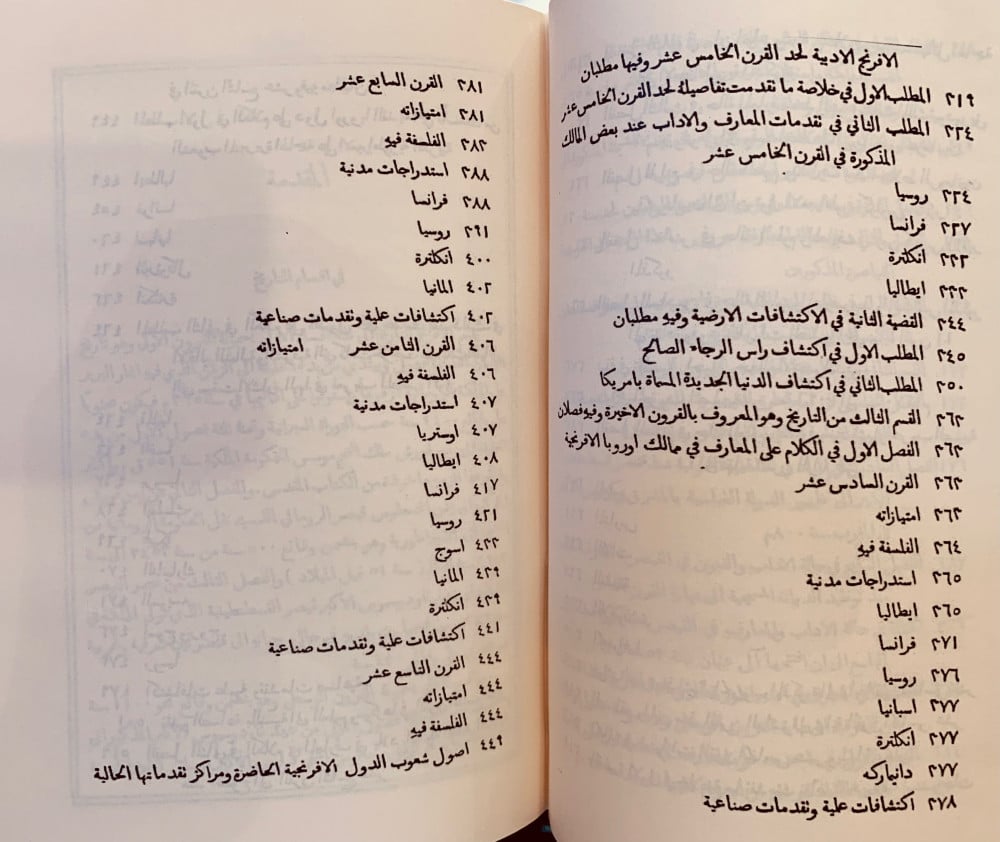 الافرنج الادبية لحد القرن الخامس عشر وفيها مطلبان
٣١٩ المطلب الاول في خلاصة ما نقدمت تفاصيلهُ لحد القرن الخامس عشر
٣٣٤ المطلب الثاني في نقدمات المعارف والاداب عند بعض المالك
المذكورة في القرن الخامس عشر
٣٣٤ روسيا
٣٣٧ فرانسا
انكلترة
ايطاليا
٣٤٤ القضية الثانية في الاكتشافات الارضية وفيهِ مطلبان
٣٤٥ المطلب الاول في اكتشاف راس الرجاء الصالح
٣٥٠ المطلب الثاني في اكتشاف الدنيا الجديدة المسماة بامريكا
٣٦٢ القسم الثالث من التاريخ وهو المعروف بالقرون الاخيرة وفيه فصلان
٣٦٢ الفصل الاول في الكلام على المعارف في ممالك اوروبا الافرنجية
٣٦٢ القرن السادس عشر
٣٦٢ امتيازاته
٣٦٤ الفلسفة فيهِ
٣٦٥ استدراجات مدنية
٣٦٥ ايطاليا
٣٧١ فرانسا
٣٧٦ روسيا
٣٧٧ اسبانيا
٣٧٧ انكلترة
٣٧٧ دانيماركه
٣٧٨ اكتشافات علمية ونقدمات صناعية
٣٨١ القرن السابع عشر
٣٨١ امتيازاته
٣٨٢ الفلسفة فيهِ
٣٨٨ استدراجات مدنية
٣٨٨ فرانسا
٣٩١ روسيا
٤٠٠ انكلترة
٤٠٢ المانيا
٤٠٢ اكتشافات علمية ونقدمات صناعية
٤٠٦ القرن الثامن عشر امتيازاته
٤٠٦ الفلسفة فيهِ
٤٠٧ استدراجات مدنية
٤٠٧ اوستريا
٤٠٨ ايطاليا
٤١٧ فرانسا
٤٢١ روسيا
٤٢٢ اسوج
٤٢٩ المانيا
٤٢٩ انكلترة
٤٤١ اكتشافات علمية ونقدمات صناعية
٤٤٤ القرن التاسع عشر
٤٤٤ امتيازاته
٤٤٤ الفلسفة فيهِ
٤٤٩ اصول شعوب الدول الافرنجية الحاضرة ومراكز نقدماتها الحالية